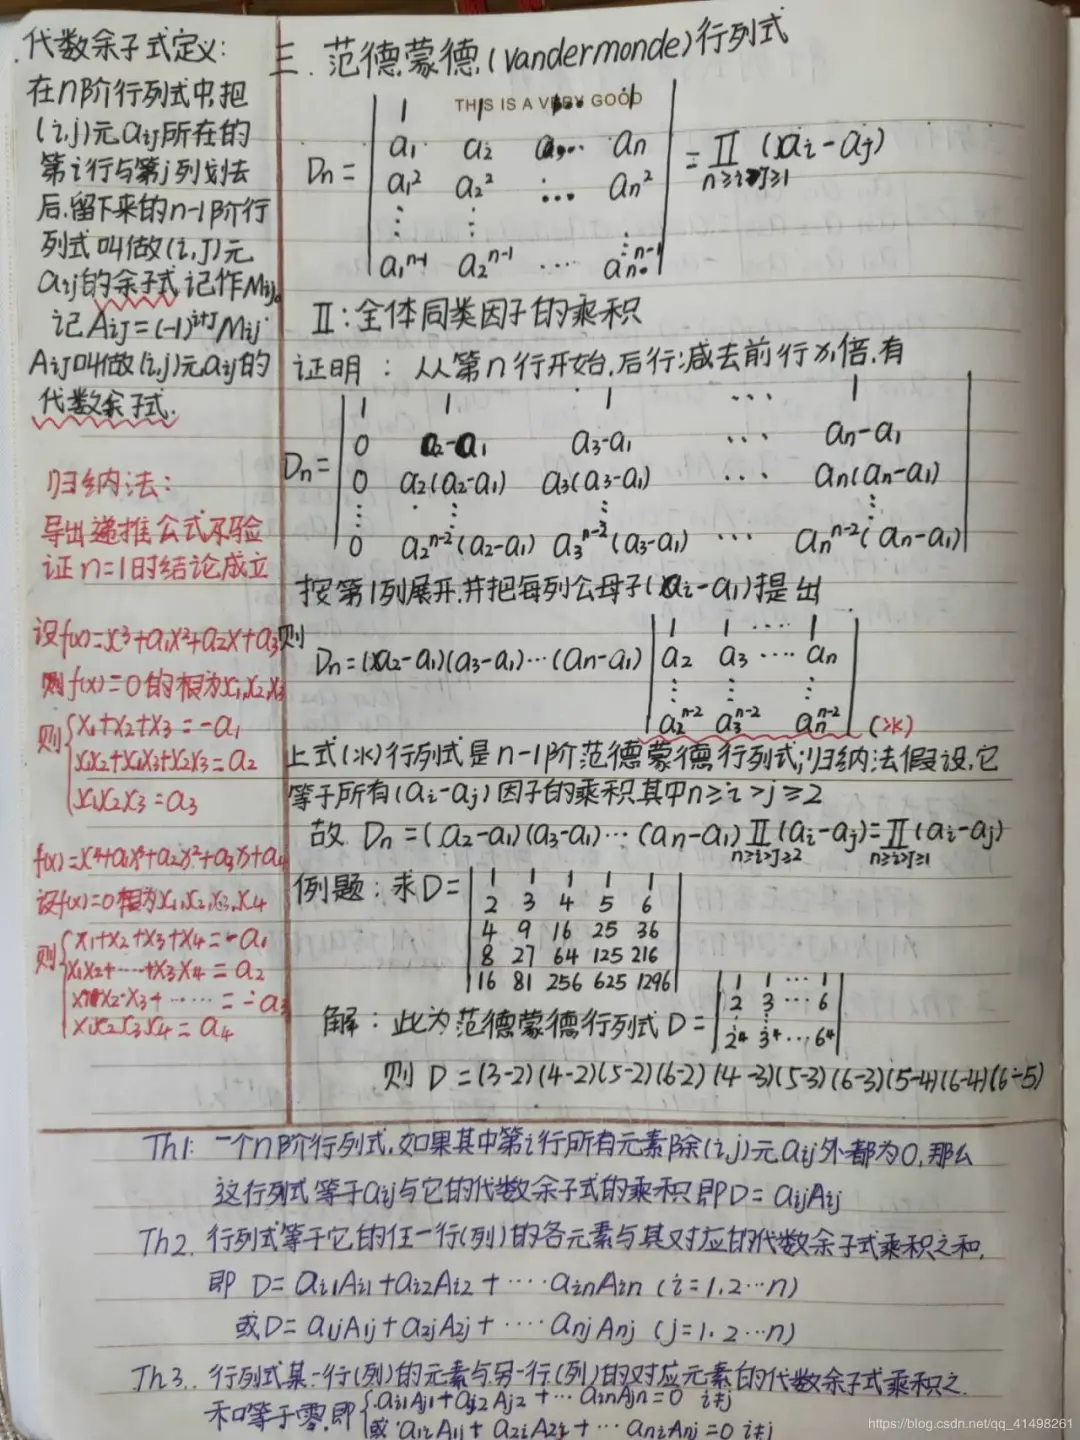 代数余子式定义:
在n阶行列式中,把
(i,j)元aij所在的
第i行与第j列划去
后,留下来的n-1阶行
列式叫做(i,j)元
aij的余子式 记作Mij。
记Aij=(-1)^{i+j}Mij
Aij叫做(i,j)元aij的
代数余子式.
归纳法:
导出递推公式不验
证n=1时结论成立
设f(x)=x³+a₁x²+a₂x+a₃
则f(x)=0的根为x₁,x₂,x₃
则{x₁+x₂+x₃=-a₁
x₁x₂+x₁x₃+x₂x₃=a₂
x₁x₂x₃=a₃
f(x)=x⁴+a₁x³+a₂x²+a₃x+a₄
设f(x)=0根为x₁,x₂,x₃,x₄
则{x₁+x₂+x₃+x₄=-a₁
x₁x₂+⋯+x₃x₄=a₂
x₁x₂x₃+⋯⋯=-a₃
x₁x₂x₃x₄=a₄
三.范德蒙德(Vandermonde)行列式
THIS IS A VERY GOOD
1 1 ⋯ 1
a₁ a₂ ⋯ an
Dn= a₁² a₂² ⋯ an² =Π(ai-aj)
n≥i>j≥1
⋮ ⋮ ⋮
a₁^{n-1} a₂^{n-1} ⋯ an^{n-1}
Π:全体同类因子的乘积
证明:从第n行开始,后行减去前行x₁倍,有
1 1 1 ⋯ 1
0 a₂-a₁ a₃-a₁ ⋯ an-a₁
Dn= 0 a₂(a₂-a₁) a₃(a₃-a₁) ⋯ an(an-a₁)
⋮ ⋮ ⋮
0 a₂^{n-2}(a₂-a₁) a₃^{n-2}(a₃-a₁) ⋯ an^{n-2}(an-a₁)
按第1列展开,并把每列公母子(ai-a₁)提出
则
1 1 ⋯ 1
Dn=(a₂-a₁)(a₃-a₁)⋯(an-a₁) a₂ a₃ ⋯ an
⋮ ⋮ ⋮
a₂^{n-2} a₃^{n-2} an^{n-2} (※)
上式(※)行列式是n-1阶范德蒙德行列式;归纳法假设,它
等于所有(ai-aj)因子的乘积.其中n≥i>j≥2
故 Dn=(a₂-a₁)(a₃-a₁)⋯(an-a₁)Π(ai-aj)=Π(ai-aj)
n≥i>j≥2 n≥i>j≥1
例题:求D= 1 1 1 1 1
2 3 4 5 6
4 9 16 25 36
8 27 64 125 216
16 81 256 625 1296
解:此为范德蒙德行列式D= 1 1 ⋯ 1
2 3 ⋯ 6
⋮ ⋮
2⁴ 3⁴ ⋯ 6⁴
则 D=(3-2)(4-2)(5-2)(6-2)(4-3)(5-3)(6-3)(5-4)(6-4)(6-5)
Th1: 一个n阶行列式,如果其中第i行所有元素除(i,j)元aij外都为0,那么
这行列式等于aij与它的代数余子式的乘积 即D=aijAij
Th2. 行列式等于它的任一行(列)的各元素与其对应的代数余子式乘积之和,
即 D=ai1Ai1+ai2Ai2+⋯⋅ainAin (i=1,2⋯n)
或D=a1jA1j+a2jA2j+⋯⋅anjAnj (j=1,2⋯n)
Th3. 行列式某一行(列)的元素与另一行(列)的对应元素的代数余子式乘积之
和等于零,即{ai1Aj1+aj2Aj2+⋯ainAjn=0 i≠j
或a1iA1j+a2iA2j+⋯aniAnj=0 i≠j
https://blog.csdn.net/qq_41498261